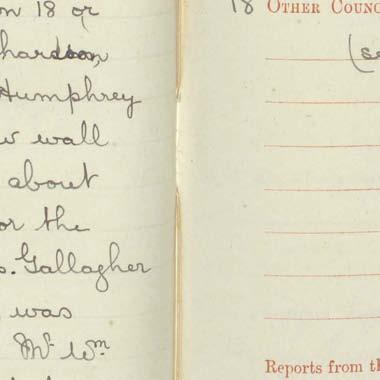 on 18 or
hardson
Humphrey
w wall
about
or the
s. Gallagher
was
Mr. Wm.
18 OTHER COUNC
(se
Reports from th